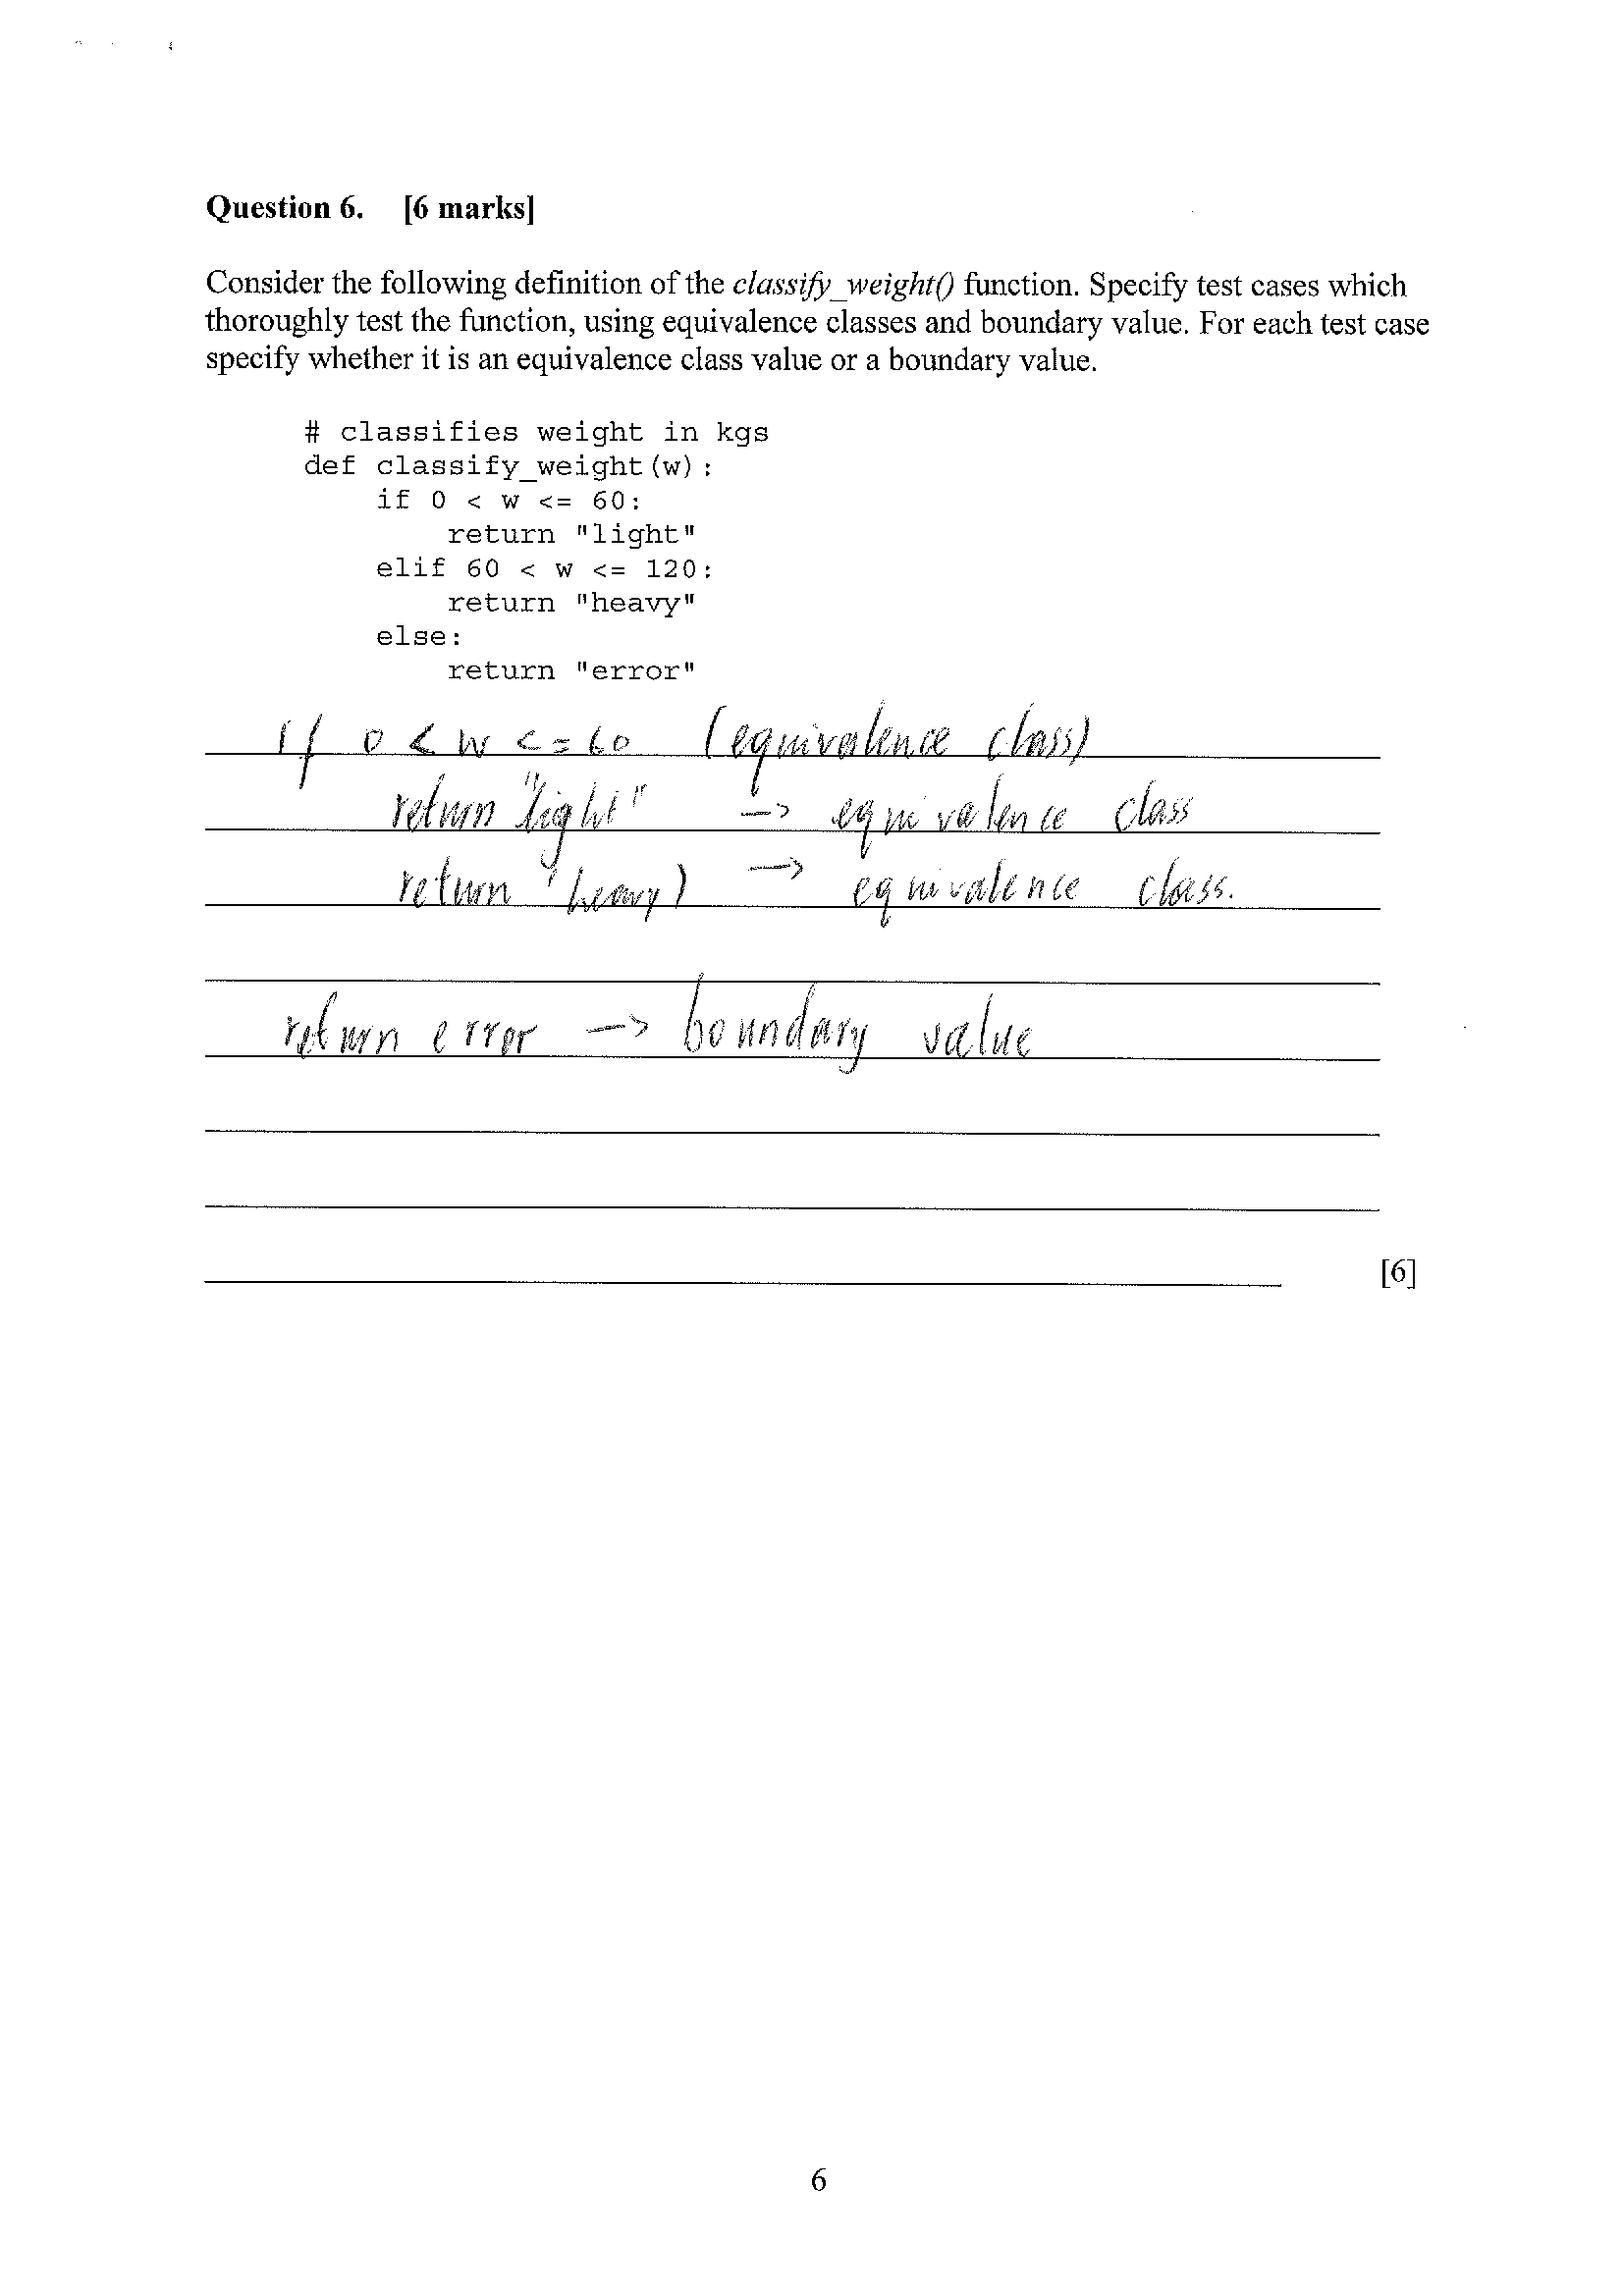 Question 6. [6 marks]
Consider the following definition of the classify_weight() function. Specify test cases which
thoroughly test the function, using equivalence classes and boundary value. For each test case
specify whether it is an equivalence class value or a boundary value.
# classifies weight in kgs
def classify_weight(w):
    if 0 < w <= 60:
        return "light"
    elif 60 < w <= 120:
        return "heavy"
    else:
        return "error"
if 0 < w <= 60 (equivalence class)
return "light" -> equivalence class
return "heavy) -> equivalence class.
return error -> boundary value
[6]
6